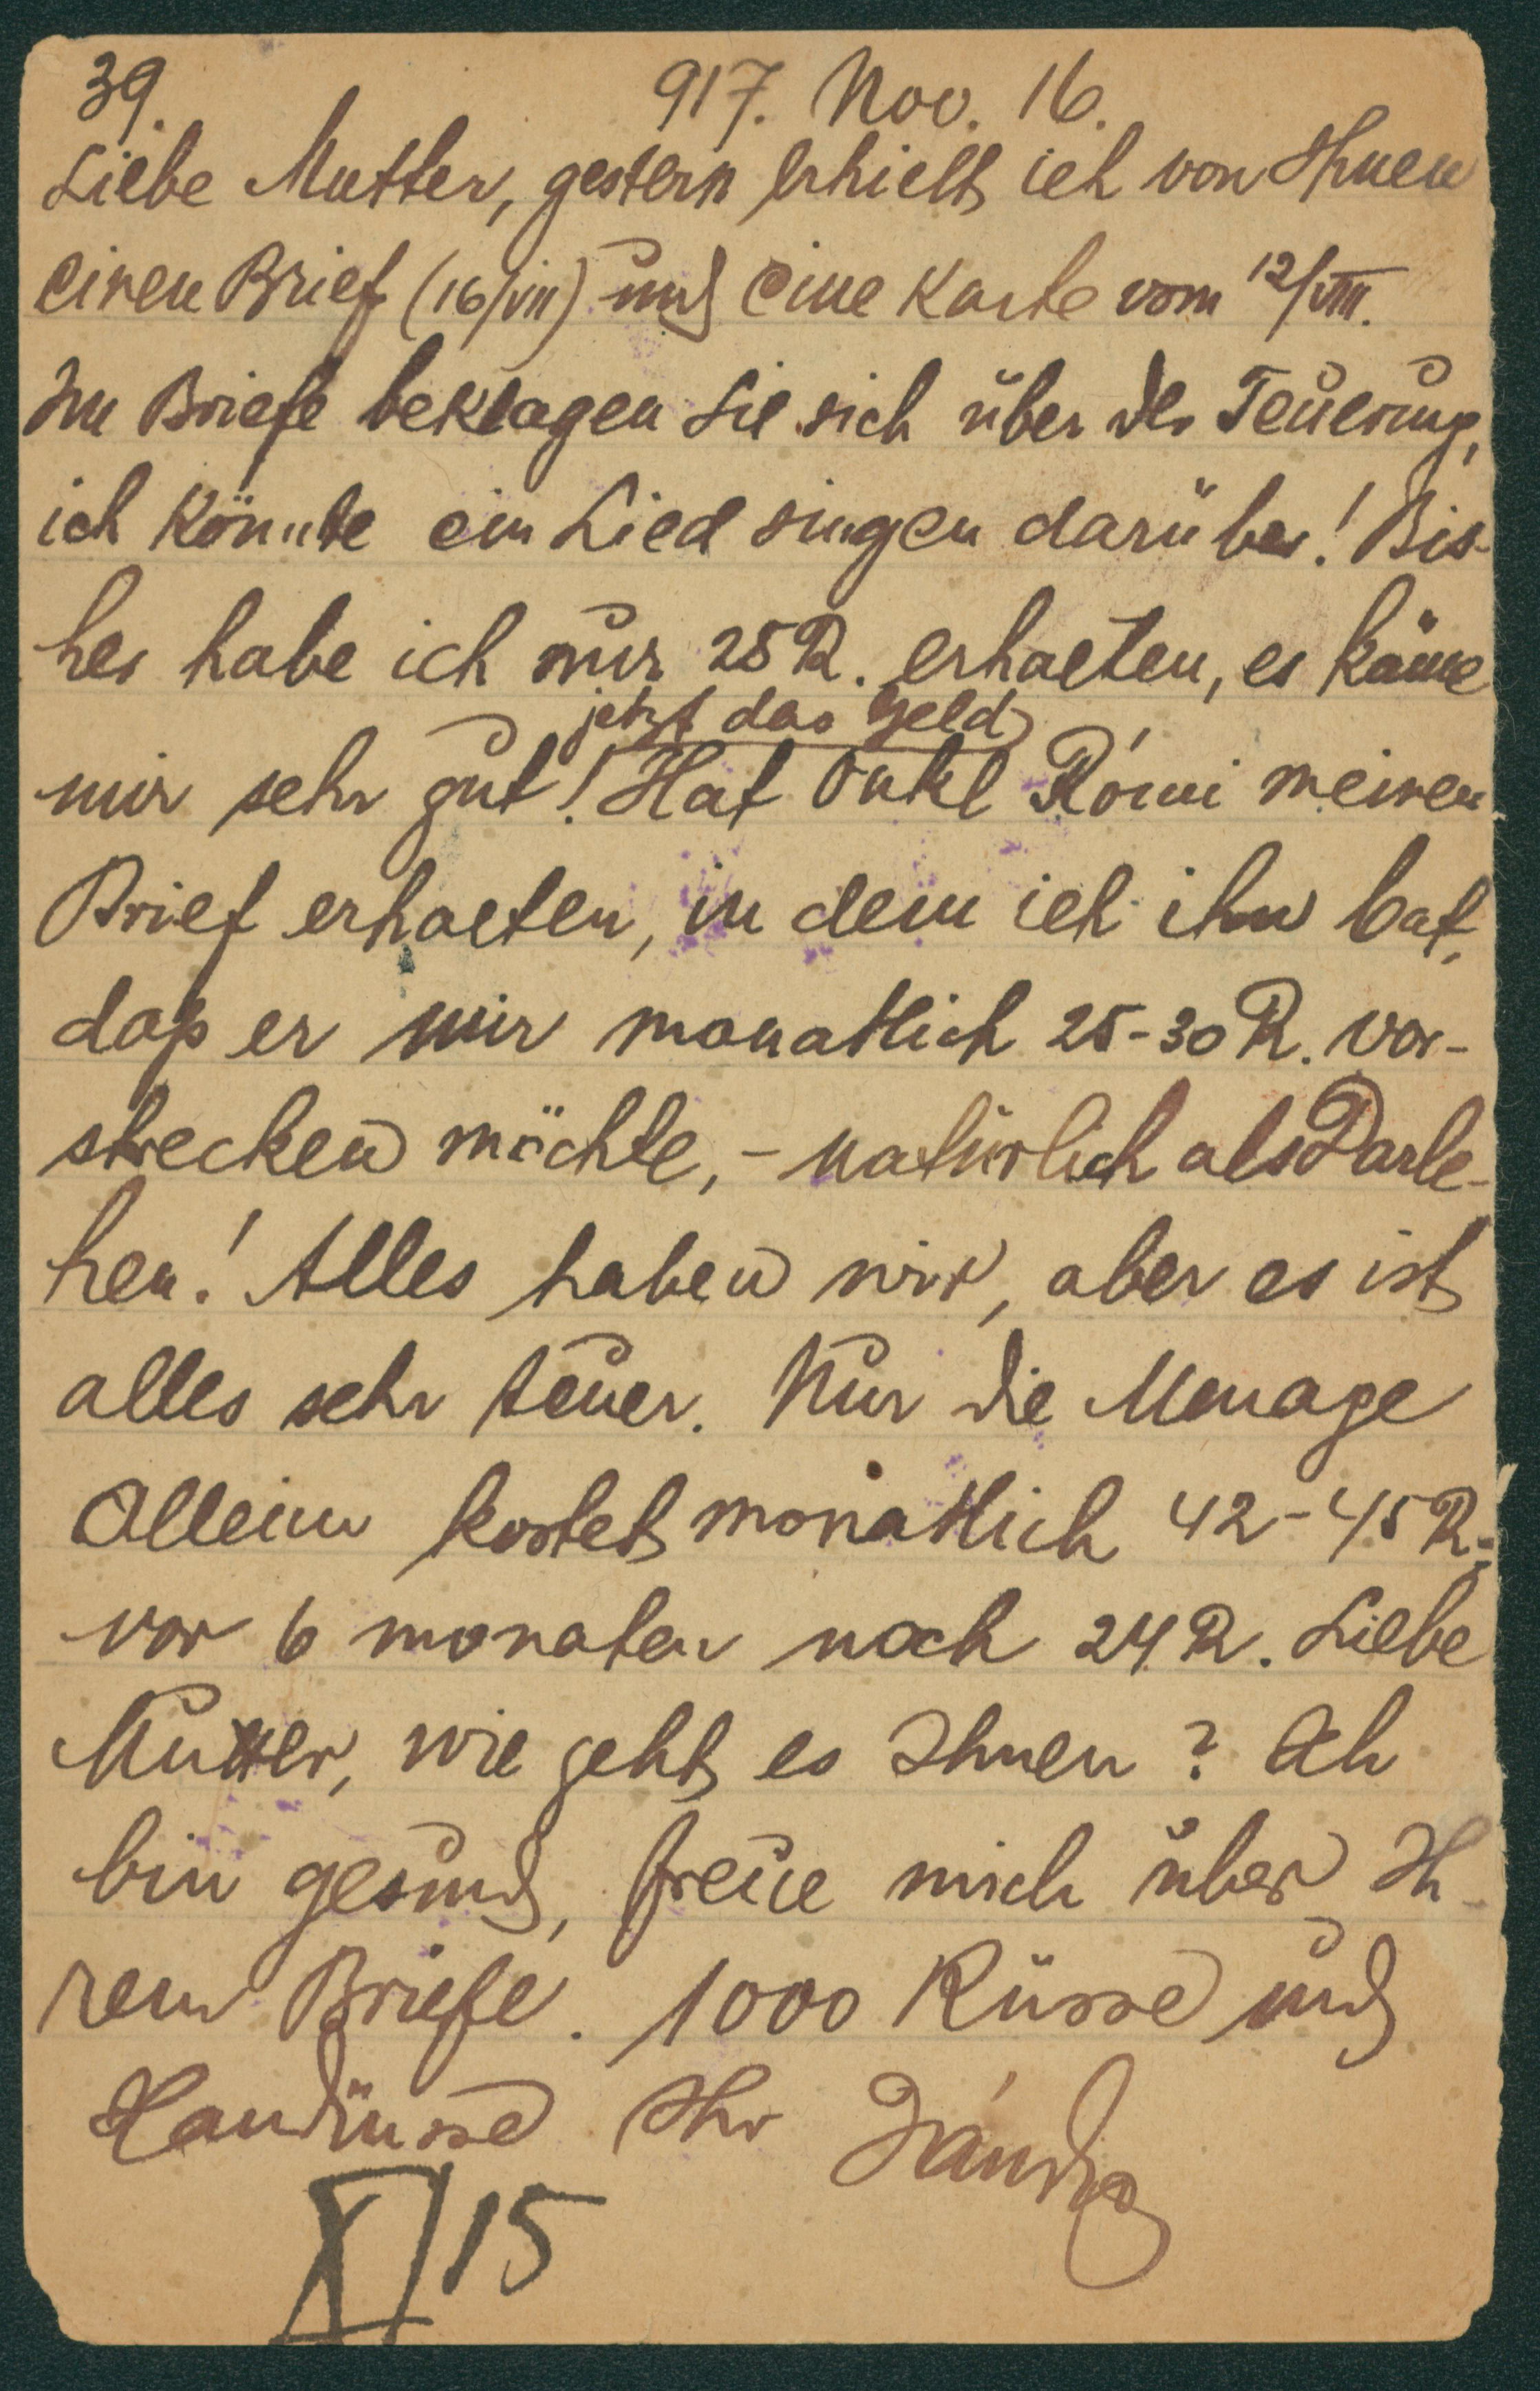 39. 917. Nov. 16.
Liebe Mutter, gestern erhielt ich von Ihnen
einen Brief (16/VII) und eine Karte vom 12/VIII.
Im Briefe beklagen Sie sich über der Teuerung,
ich könnte ein Lied singen darüber! Bis-
her habe ich nur 25 R. erhalten, es käme
jetzt das Geld
mir sehr gut! Hat Onkl Rómi meinen
Brief erhalten, in dem ich ihn bat,
daß er mir monatlich 25-30 R. vor-
strecken möchte, - natürlich als Darle-
hen! Alles haben wir, aber es ist
alles sehr teuer. Nur die Menage
allein kostet monatlich 42-45 R.;
vor 6 monaten noch 24 R. Liebe
Mutter, wie geht es Ihnen? Ich
bin gesund, freue mich über Ih-
ren Briefe. 1000 Küsse und
Handküsse Ihr
XI/15